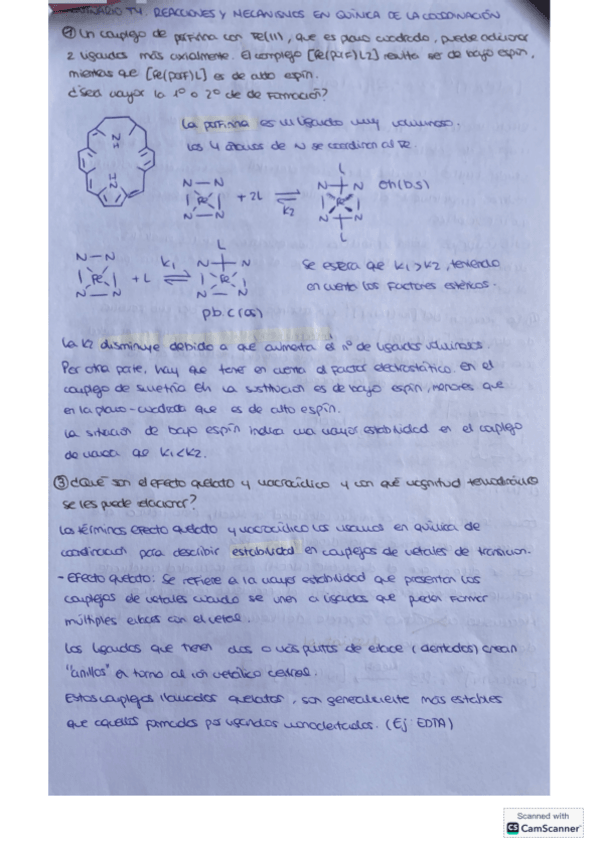 SEMINARIO T4. REACCIONES Y MECANISMOS EN QUÍMICA DE LA COORDINACIÓN
Un complejo de porfirina con Fe(II), que es plano cuadrado, puede adicionar
2 ligandos más axialmente. El complejo [Fe(porf)L2] resulta ser de bajo espín,
mientras que [Fe(porf)L] es de alto espín.
¿Será mayor la 1º o 2º de de formación?
La porfirina es un ligando muy voluminoso.
Los 4 átomos de N se coordinan al Fe.
NH
HN
N — N
Fe
N — N
+ 2L
⇌
K2
L
N N
Fe
N N
L
Oh (b.s)
N — N
Fe
N — N
+ L
K1
⇌
L
N N
Fe
N — N
pb. c (as)
Se espera que K1 > K2, teniendo
en cuenta los factores estéricos.
La K2 disminuye debido a que aumenta el nº de ligandos voluminosos.
Por otra parte, hay que tener en cuenta el factor electrostático. en el
complejo de simetría Oh la sustitución es de bajo espín, menores que
en la plano-cuadrada que es de alto espín.
La situación de bajo espín indica una mayor estabilidad en el complejo
de manera que K1 < K2.
③ ¿Qué son el efecto quelato y macrocíclico y con qué magnitud termodinámica
se les puede relacionar?
Los términos efecto quelato y macrocíclico los usamos en química de
coordinación para describir estabilidad en complejos de metales de transición.
- Efecto quelato: Se refiere a la mayor estabilidad que presentan los
complejos de metales cuando se unen a ligandos que pueden formar
múltiples enlaces con el metal.
Los ligandos que tienen dos o más puntos de enlace (dentados) crean
"anillos" en torno al ión metálico central.
Estos complejos llamados quelatos, son generalmente más estables
que aquellos formados por ligandos monodentados. (Ej: EDTA)
Scanned with
CS CamScanner